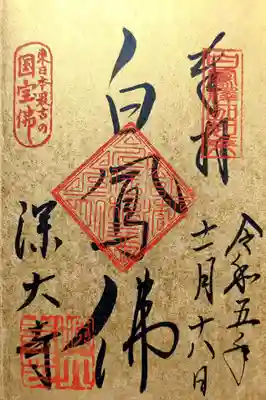 奉拝
令和五年
十一月十八日
白鳳佛
深大寺
東日本最古の
国宝佛